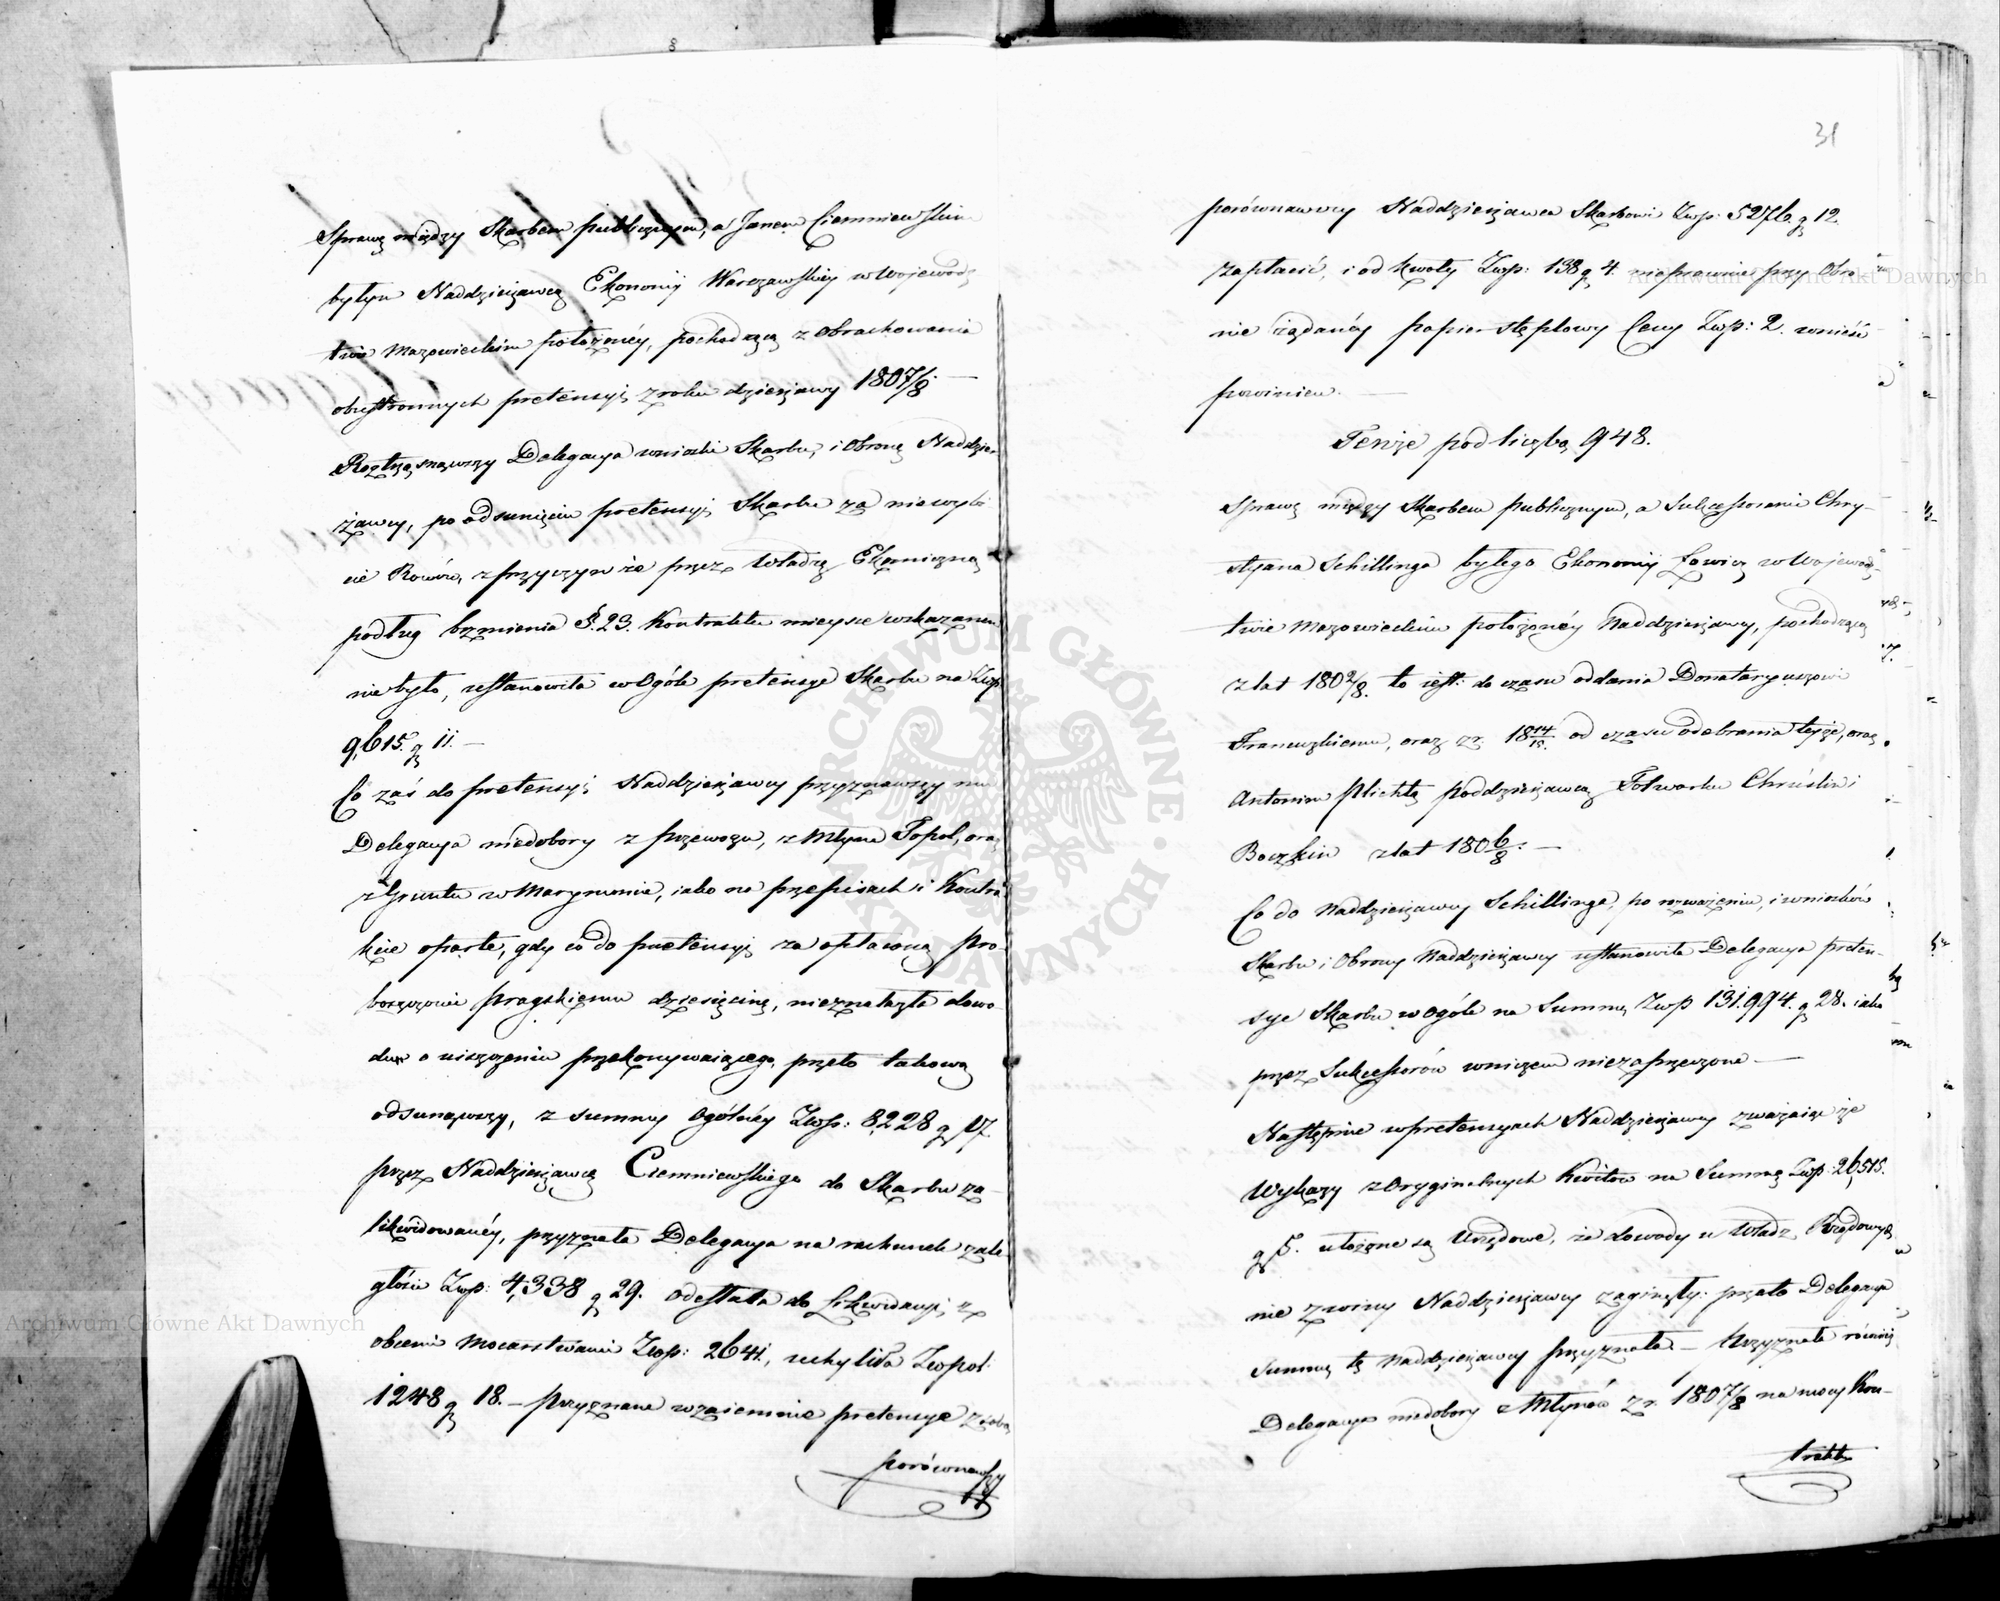 Sprawę między Skarbem publicznym, a Janem Ciemniewskim
byłym Naddzierżawcą Ekonomij Warszawskiey w Wojewodz
twie Mazowieckim położonéy, pochodzącą z Obrachowania
obustronnych pretensyi z roku dzierżawy 1807/8. —
Roztrząsnąwszy Delegacya wnioski Skarbu, i Obronę Naddzier
żawcy, po odsunięciu pretensyi Skarbu za niewybi
cie Rowów, z przyczyn że przez Władzę Ekonomiczną
podług brzmienia §. 23. Kontraktu mieysce wskazanem
nie było, ustanowiła w Ogóle pretensye Skarbu na Zwp.
9,615. g 11. —
Co zaś do pretensyi Naddzierżawcy przyznawszy mu
Delegacya niedobory z przewozu, z Młyna Topol, oraz
z Gruntu w Marymoncie, iako na przepisach i Kontra
kcie oparte, gdy co do pretensyi za opłaconą Pro
boszczowi pragskiemu dziesięcinę, nieznalazła dowo
du o uiszczeniu przekonywaiącego, przeto takową
odsunąwszy, z summy Ogólnéy Zwp: 8228 g 17.
przez Naddzierżawcę Ciemniewskiego do Skarbu za-
likwidowanéy, przyznała Delegacya na rachunek zale
głości Zwp: 4,338 g 29. odesłała do Likwidacyi z
obcemi Mocarstwami Zwp: 2641, uchyliła Zwpol:
1248 g 18. — Przyznane wzaiemnie pretensye z sobą
porównawszy
31
porównawszy Naddzierżawca Skarbowi Zwp: 5276 g 12.
zapłacić, i od kwoty Zwp: 138 g 4. nieprawnie przy Obro
nie żądanéy papier stęplowy Ceny Zwp: 2. wnieść
powinien. —
Tenże pod liczbą 948.
Sprawę między Skarbem publicznym, a Sukcessorami Chry-
styana Schillinga byłego Ekonomij Łowicz w Wojewodz-
twie Mazowieckim położonéy Naddzierżawcy, pochodzącą
z lat 1802/8. to iest: do czasu oddania Donataryuszowi
Francuzkiemu, oraz z r. 1814/15. od czasu odebrania teyże, oraz
Antonim Plichtą poddzierżawcą Folwarku Chruślin i
Boczkin z lat 1806/8. —
Co do Naddzierżawcy Schillinga, po rozważeniu, i wniosków
Skarbu i Obrony Naddzierżawcy ustanowiła Delegacya preten-
sye Skarbu w ogóle na Summę Zwp 131.994. g 28. iako
przez Sukcessorów wniczem niezaprzeczone —
Następnie w pretensyach Naddzierżawcy zważaiąc że
Wykazy z Oryginalnych Kwitów na Summę Zwp: 26,515.
g 5. ułożone są Urzędowe, że dowody u Władz Rządowych
nie z winy Naddzierżawcy zaginęły: przeto Delegacya
Summę tę Naddzierżawcy przyznała — Przyznała również
Delegacya niedobory z Młynów z r. 1807/8 na mocy Kon-
traktu